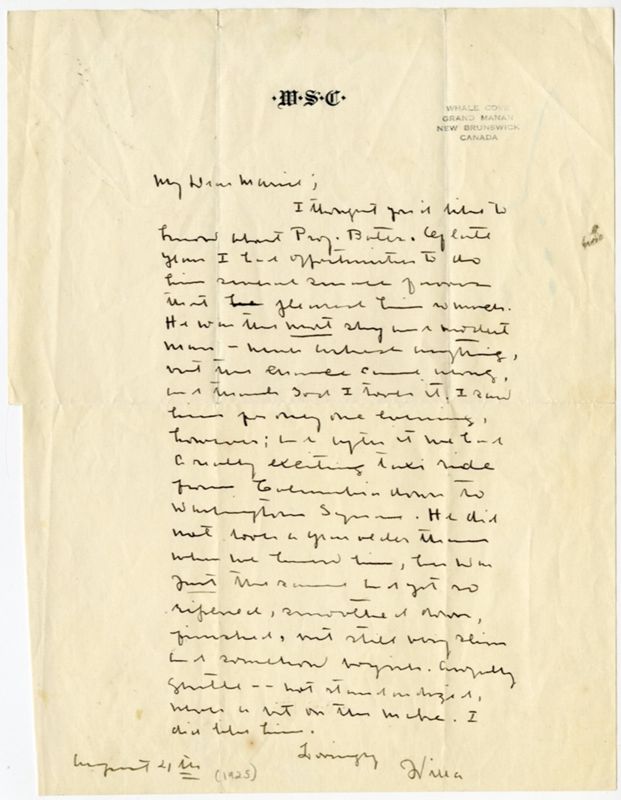 ·W·S·C·
WHALE COVE
GRAND MANAN
NEW BRUNSWICK
CANADA
My Dear Mariel;
I thought you'd like to
know about Prof. Bates. Of late
years I had opportunities to do
him several small favors
that pleased him so much.
He was the most shy and modest
man - never asked anything,
but the chance came along,
and thank God I took it. I saw
him for only one evening,
however; and after it we had
a really exciting taxi ride
from Columbia down to
Washington Square. He did
not look a year older than
when we knew him, he was
just the same and yet so
ripened, smoothed down,
finished, but still very slim
and somehow boyish. Awfully
gentle -- not standardized,
never a bit on the make. I
did like him.
Lovingly
Willa
August 21st (1925)